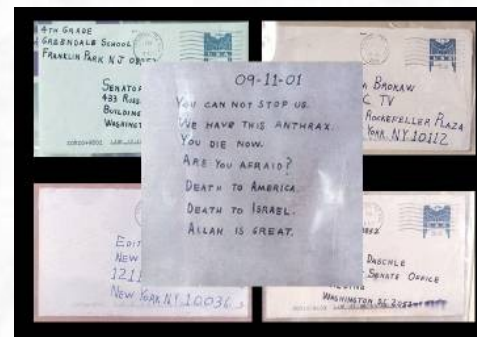 4TH GRADE
GREENDALE SCHOOL
FRANKLIN PARK NJ
SENATOR
433
BUILDING
BROKAW
TV
ROCKEFELLER PLAZA
YORK NY 10112
09-11-01
YOU CAN NOT STOP US.
WE HAVE THIS ANTHRAX.
YOU DIE NOW.
ARE YOU AFRAID?
DEATH TO AMERICA.
DEATH TO ISRAEL.
ALLAH IS GREAT.
NEW
NEW YORK NY 10036
DASCHLE
SENATE OFFICE
WASHINGTON